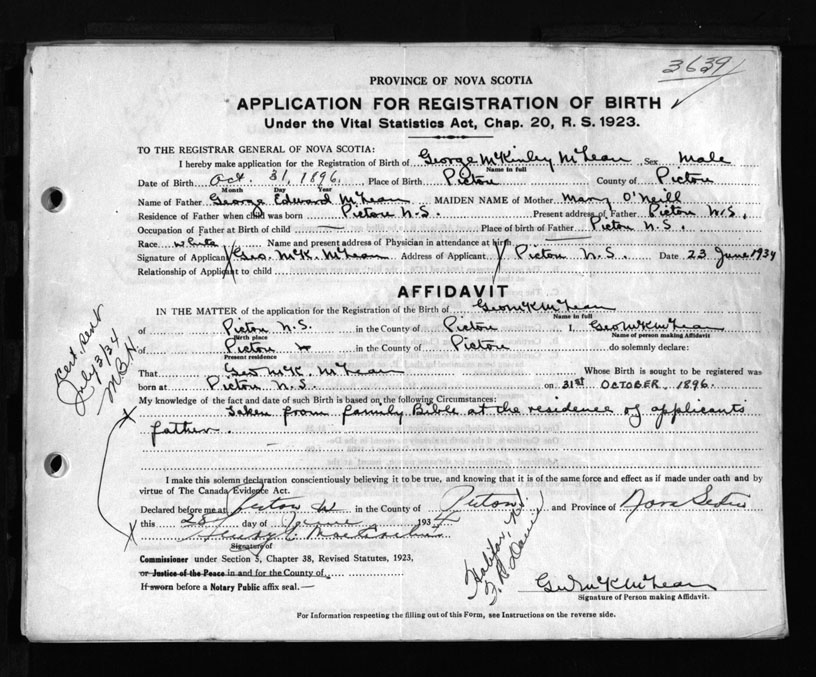 3639
PROVINCE OF NOVA SCOTIA
APPLICATION FOR REGISTRATION OF BIRTH
Under the Vital Statistics Act, Chap. 20, R. S. 1923.
TO THE REGISTRAR GENERAL OF NOVA SCOTIA:
I hereby make application for the Registration of Birth of George McKinley McLean Sex Male
Name in full
Date of Birth Oct. 31, 1896. Place of Birth Pictou County of Pictou
Month Day Year
Name of Father George Edward McLean MAIDEN NAME of Mother Mary O'Neill
Residence of Father when child was born Pictou N.S. Present address of Father Pictou N.S.
Occupation of Father at Birth of child — Place of birth of Father Pictou N.S.
Race white Name and present address of Physician in attendance at birth —
Signature of Applicant Geo. McK. McLean Address of Applicant Pictou N.S. Date 23 June 1934
Relationship of Applicant to child
AFFIDAVIT
IN THE MATTER of the application for the Registration of the Birth of Geo McK McLean
Name in full
of Pictou N.S. in the County of Pictou I, Geo McK McLean
Birth place Name of person making Affidavit
of Pictou in the County of Pictou do solemnly declare:
Present residence
That Geo McK. McLean Whose Birth is sought to be registered was
born at Pictou N.S. on 31st OCTOBER 1896.
My knowledge of the fact and date of such Birth is based on the following Circumstances:
Taken from family Bible at the residence of applicants
father
Cert. sent
July 3/34
M.B.H.
I make this solemn declaration conscientiously believing it to be true, and knowing that it is of the same force and effect as if made under oath and by
virtue of The Canada Evidence Act.
Declared before me at Pictou in the County of Pictou and Province of Nova Scotia
this day of June 1934
Signature of
Commissioner under Section 5, Chapter 38, Revised Statutes, 1923,
or Justice of the Peace in and for the County of
If sworn before a Notary Public affix seal.
Halifax, N.S.
Geo McK McLean
Signature of Person making Affidavit.
For Information respecting the filling out of this Form, see Instructions on the reverse side.